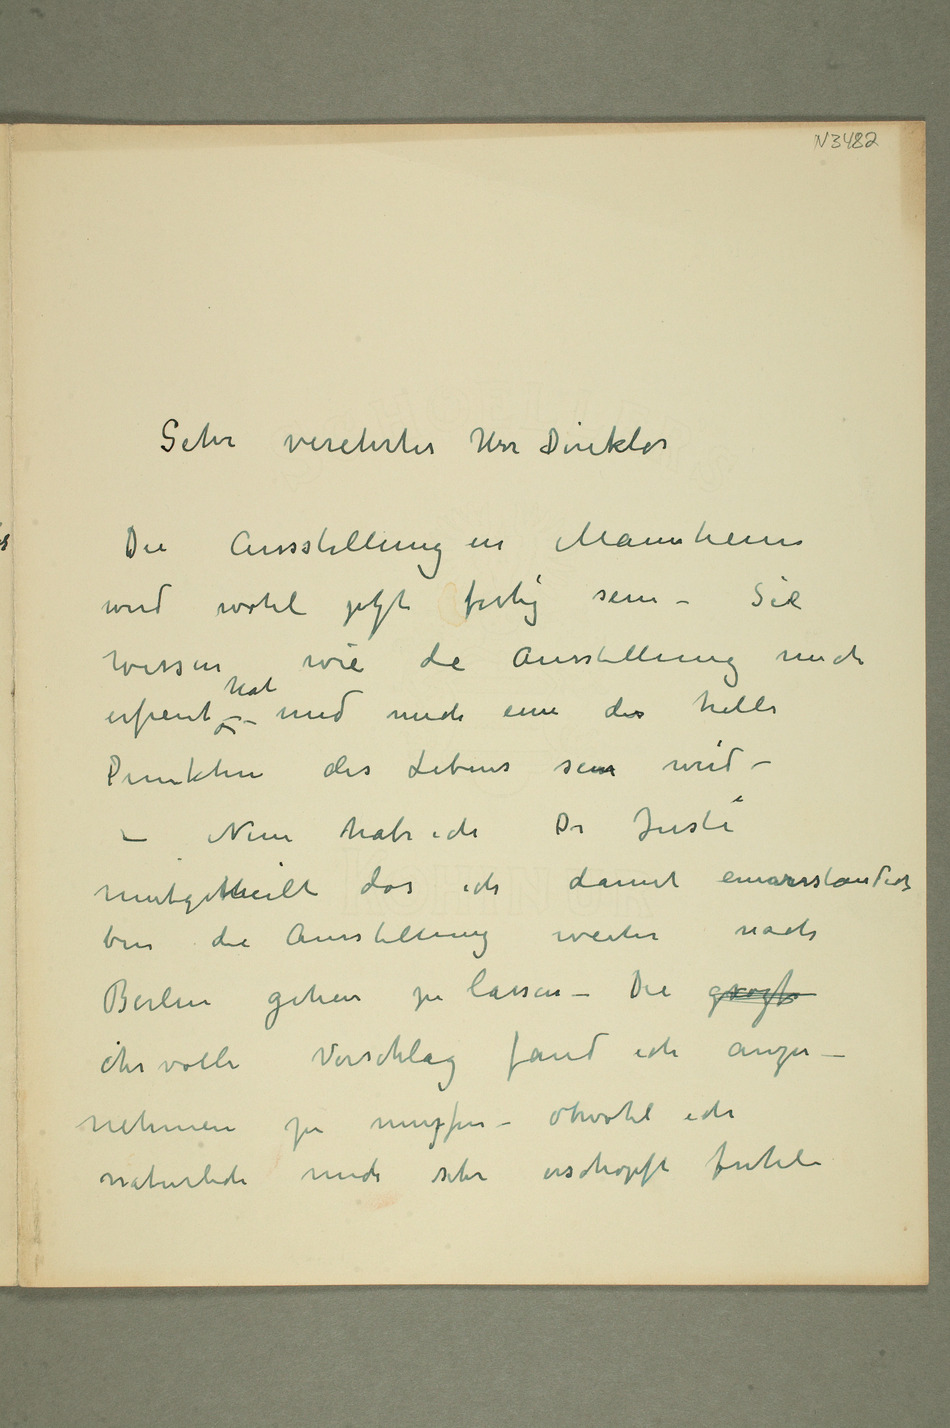 N3482
Sehr verehrter Herr Direktor
Die Ausstellung in Mannheim
wird wohl jetzt fertig sein – Sie
wissen wie die Ausstellung mich
erfreut hat – und mich eine der helle
Punkten des Lebens sein wird –
– Nun habe ich Dr Justi
mitgetheilt das ich damit einverstanden
bin die Ausstellung weiter nach
Berlin gehen zu lassen – Die
ehrvolle Vorschlag fand ich anzu–
nehmen zu müssen – obwohl ich
naturlich mich sehr erschöpft fühle